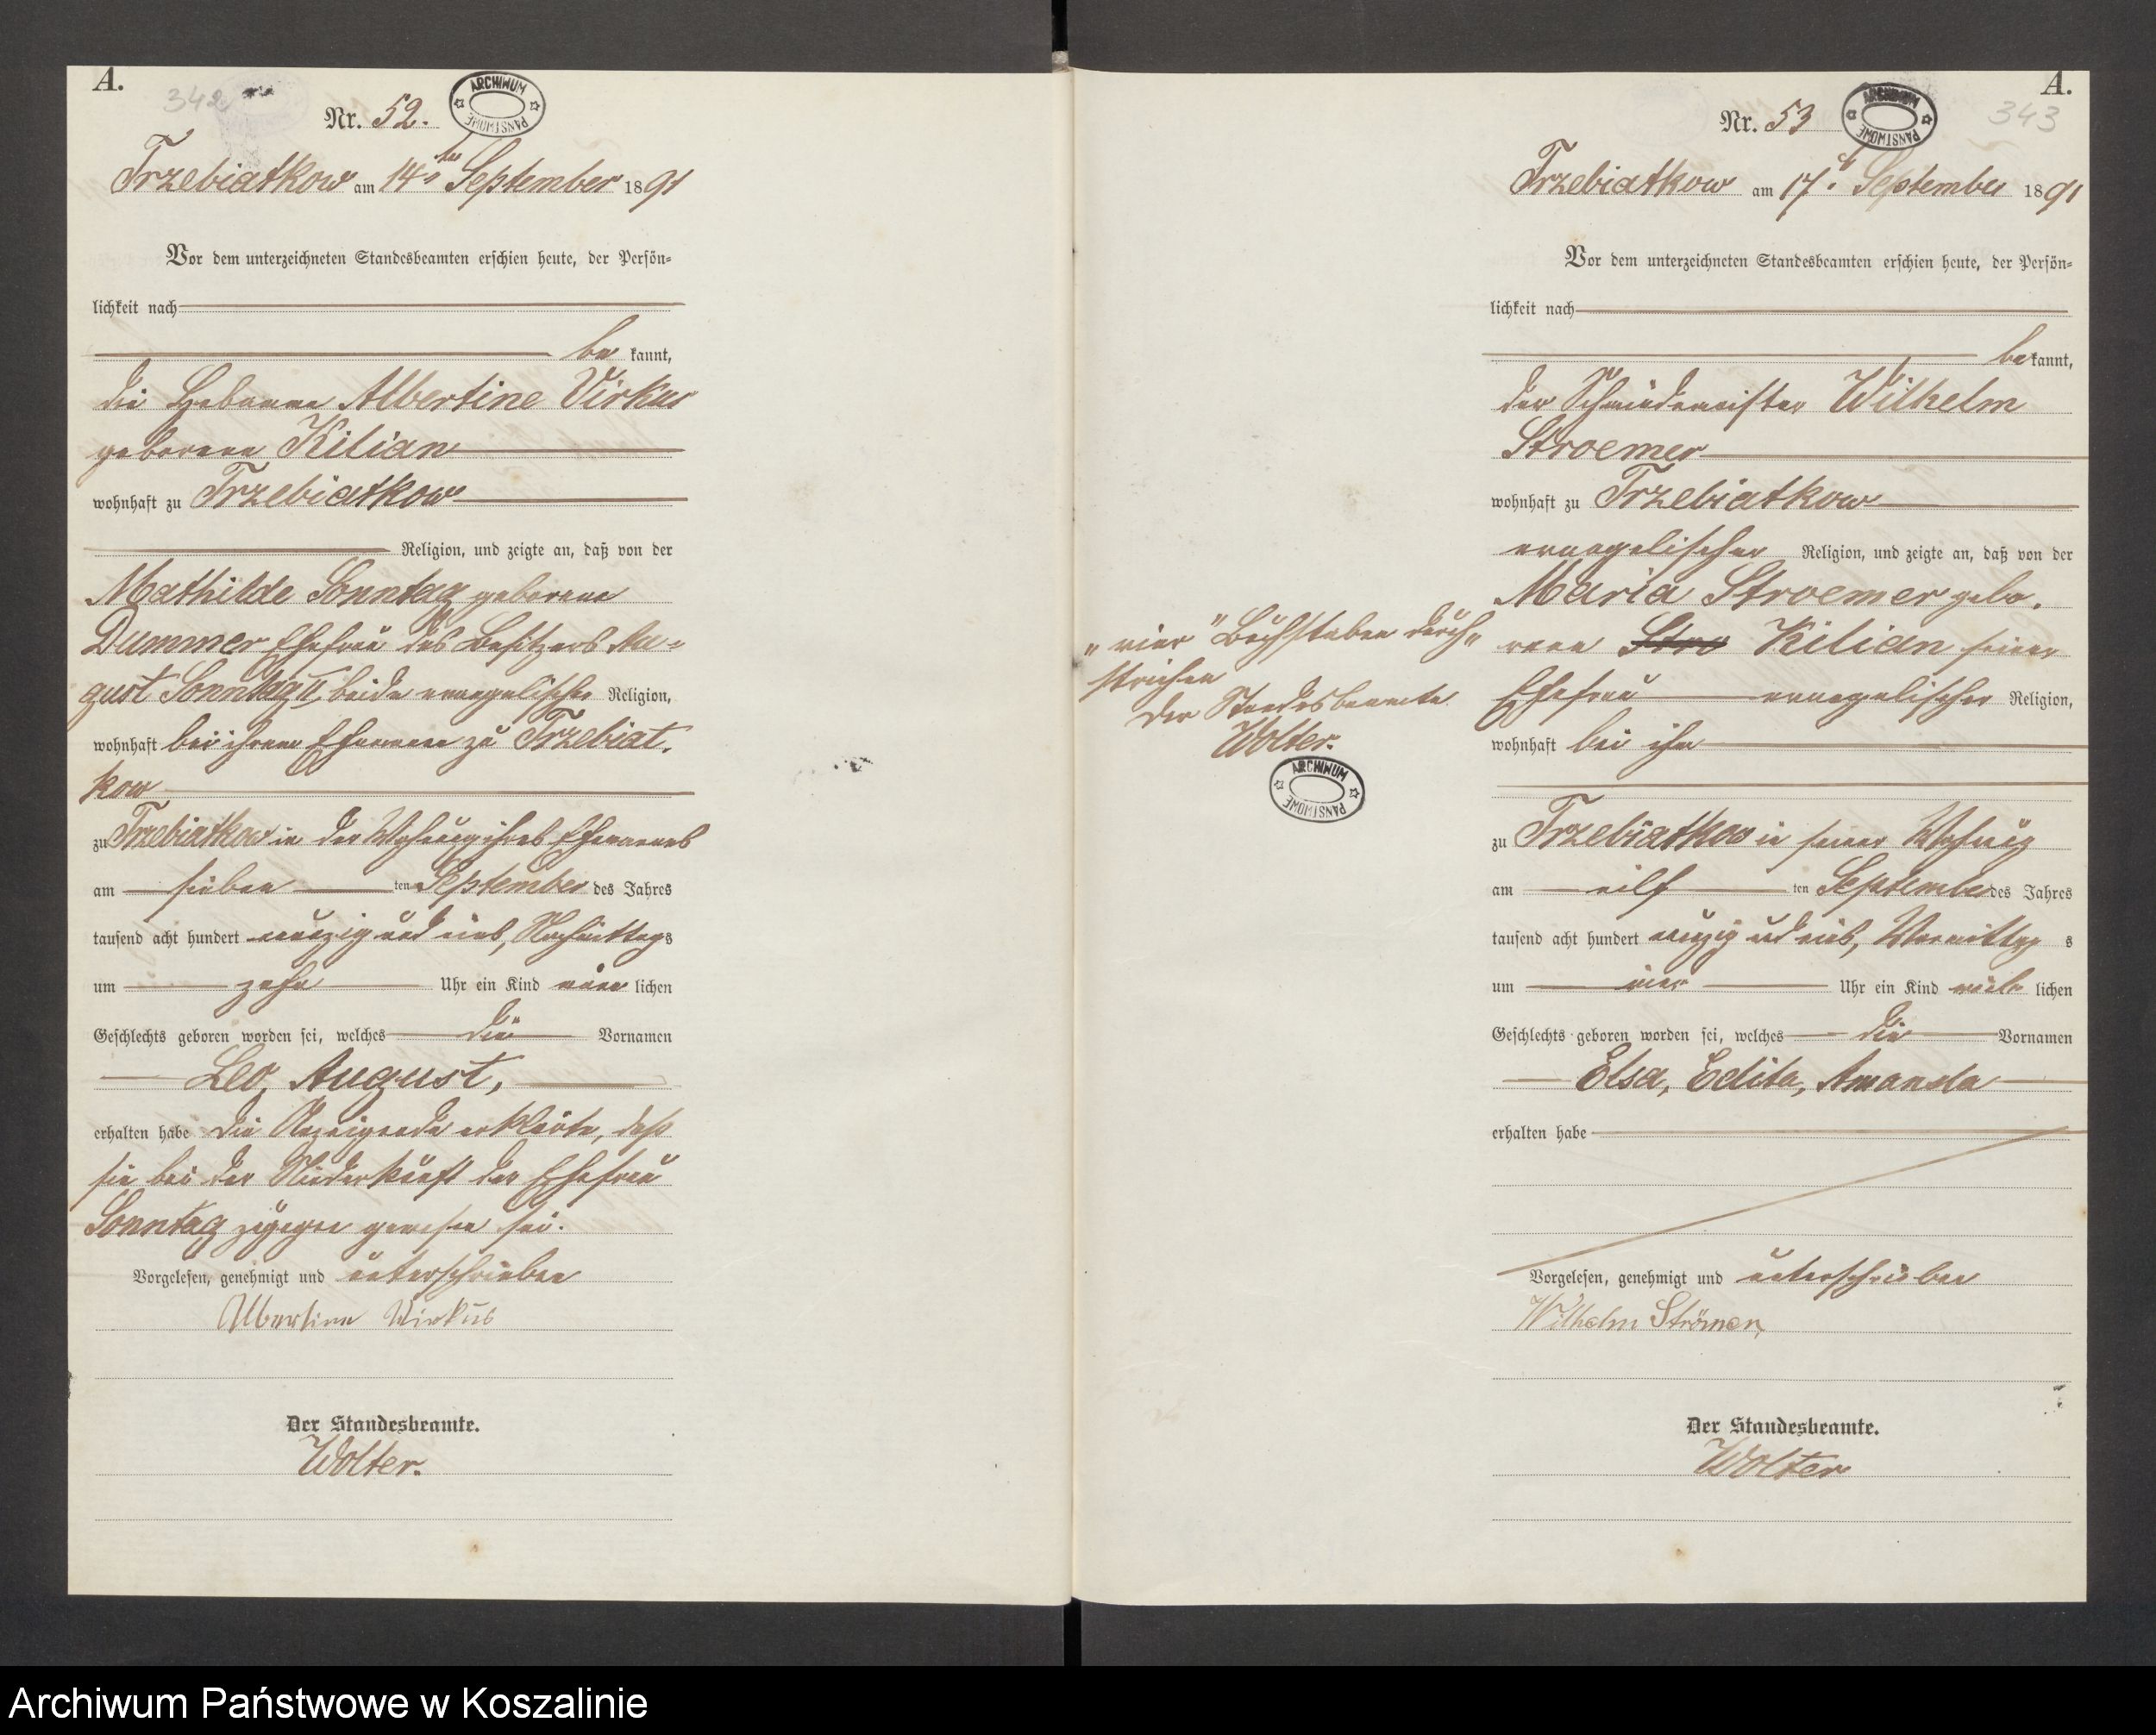 A.
342
Nr. 52.
ARCHIWUM PAŃSTWOWE
Trzebiatkow am 14ten September 1891
Vor dem unterzeichneten Standesbeamten erschien heute, der Persön-
lichkeit nach
be kannt,
die Hebamme Albertine Virkus
geborene Kilian
wohnhaft zu Trzebiatkow
Religion, und zeigte an, daß von der
Mathilde Sonntag geborene
Dummer Ehefrau des Besitzers Au-
gust Sonntag II, beide evangelischer Religion,
wohnhaft bei ihrem Ehemann zu Trzebiat-
kow
zu Trzebiatkow in der Wohnung ihres Ehemannes
am sieben ten September des Jahres
tausend acht hundert neunzig und eins, Nachmittags
um zehn Uhr ein Kind männ lichen
Geschlechts geboren worden sei, welches die Vornamen
Leo, August,
erhalten habe. Die Anzeigende erklärte, daß
sie bei der Niederkunft der Ehefrau
Sonntag zugegen gewesen sei.
Vorgelesen, genehmigt und unterschrieben
Albertine Wirkus
Der Standesbeamte.
Wolter.
A.
343
Nr. 53
ARCHIWUM PAŃSTWOWE
Trzebiatkow am 17t. September 1891
Vor dem unterzeichneten Standesbeamten erschien heute, der Persön-
lichkeit nach
be kannt,
der Schmiedemeister Wilhelm
Stroemer
wohnhaft zu Trzebiatkow
evangelischer Religion, und zeigte an, daß von der
Maria Stroemer gebo-
rene Stro Kilian seiner
Ehefrau evangelischer Religion,
wohnhaft bei ihm
zu Trzebiatkow in seiner Wohnung
am eilf ten September des Jahres
tausend acht hundert neunzig und eins, Vormittag s
um vier Uhr ein Kind weib lichen
Geschlechts geboren worden sei, welches die Vornamen
Elsa, Edita, Amanda
erhalten habe
Vorgelesen, genehmigt und unterschrieben
Wilhelm Strömer,
Der Standesbeamte.
Wolter
„vier" Buchstaben durch„
strichen
Der Standesbeamte.
Wolter.
ARCHIWUM PAŃSTWOWE
Archiwum Państwowe w Koszalinie